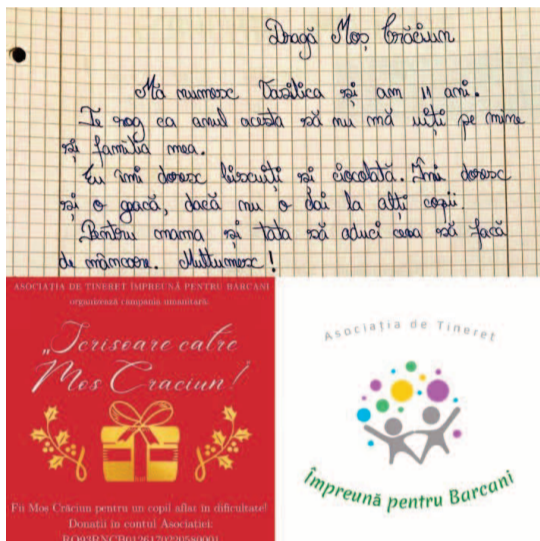 Dragă Moș Crăciun
Mă numesc Vasilica și am 11 ani.
Te rog ca anul acesta să nu mă uiți pe mine
și familia mea.
Eu îmi doresc biscuiți și ciocolată. Îmi doresc
și o geacă, dacă nu o dai la alți copii.
Pentru mama și tata să aduci ceva să facă
de mâncare. Multumesc!
ASOCIAȚIA DE TINERET ÎMPREUNĂ PENTRU BARCANI
organizează campania umanitară:
„Scrisoare catre
Mos Craciun!
Fii Moș Crăciun pentru un copil aflat in dificultate!
Donatii in contul Asociatiei:
Asociația de Tineret
Împreună pentru Barcani